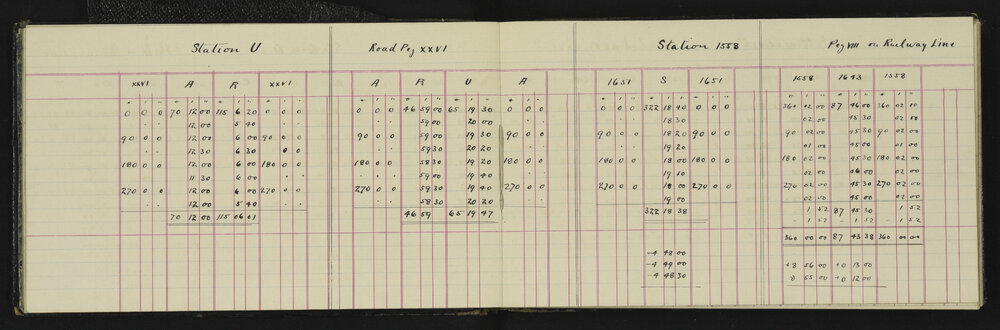 Station U
XXVI A R XXVI
° ' " ° ' " ° ' " ° ' "
0 0 0 70 12 00 115 6 20 0 0 0
. . 12 00 5 40 . .
90 0 0 12 00 6 00 90 0 0
. . 12 30 6 30 0 0
180 0 0 12 00 6 00 180 0 0
. . 11 30 6 00 . .
270 0 0 12 00 6 00 270 0 0
12 00 5 40
70 12 00 115 06 01
Road Peg XXVI
A R U A
° ' " ° ' " ° ' " ° ' "
0 0 0 46 59 00 65 19 30 0 0 0
. . 59 00 20 00 . .
90 0 0 59 00 19 30 90 0 0
. . 59 30 20 20 . .
180 0 0 58 30 19 20 180 0 0
. . 59 00 19 40 . .
270 0 0 59 30 19 40 270 0 0
. . 58 30 20 20 . .
46 59 65 19 47
Station 1558
1651 S 1651
° ' " ° ' " ° ' "
0 0 0 322 18 40 0 0 0
. . 18 30 . .
90 0 0 18 20 90 0 0
. . 19 20 . .
180 0 0 18 00 180 0 0
. . 19 10 . .
270 0 0 18 00 270 0 0
. . 19 00 . .
322 18 38
-4 48 00
-4 49 00
-4 48 30
Peg VIII on Railway Line
1558 1643 1558
° ' " ° ' " ° ' "
360 02 00 87 46 00 360 02 00
02 00 45 30 02 00
90 02 00 45 30 90 02 00
01 00 45 00 01 00
180 02 00 45 30 180 02 00
02 00 46 00 02 00
270 02 00 45 30 270 02 00
02 00 45 00 02 00
- 1 52 87 45 30 - 1 52
- 1 52 - 1 52
360 00 00 87 43 38 360 00 00
+8 56 00 +0 13 00
55 00 +0 12 00